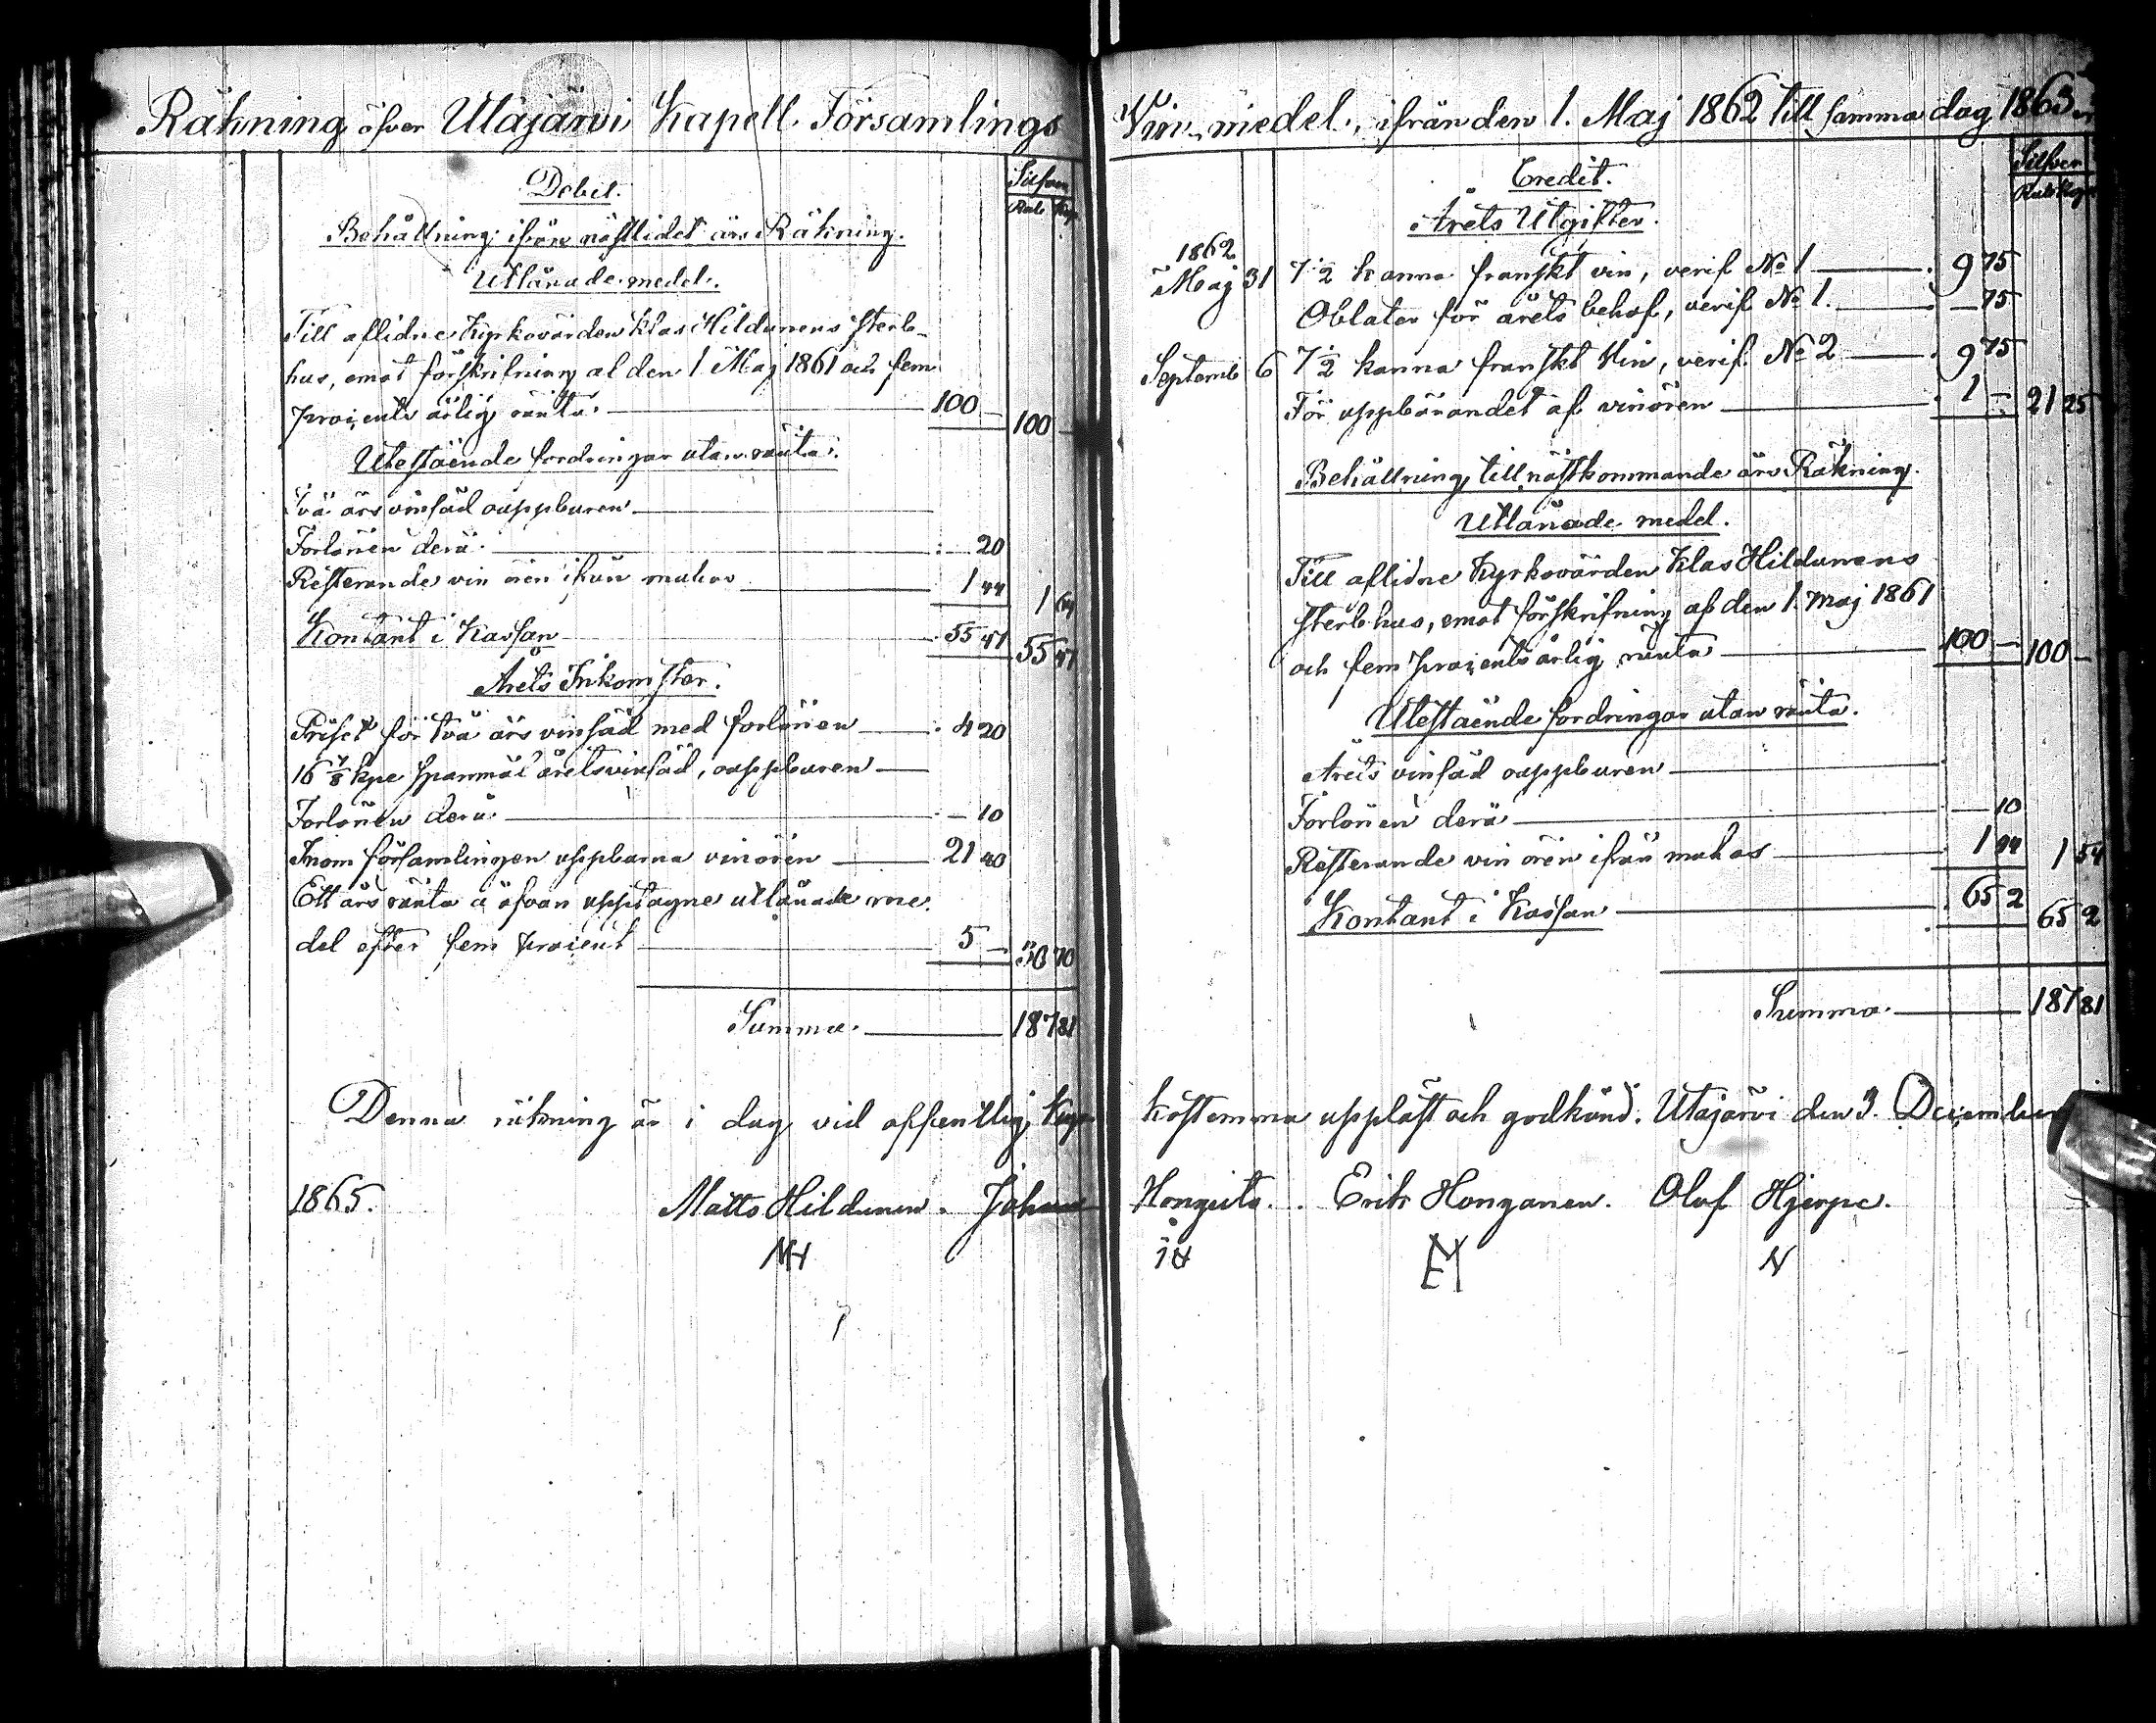 Räkning öfver Utajärvi Kapell Församlings
Debet.
Silfver
Rub. Kop.
Behållning ifrån nästlidet års Räkning.
Utlånade medel.
Till aflidne Kyrkovärden Klas Hildunens sterb-
hus, emot förskrifning af den 1 Maj 1861 och fem
procents årlig ränta. 100 — 100 —
Utestående fordringar utan ränta.
Två års vinsäd ouppburen
Forlönen derå 20
Resterande vin ören ifrån muhos 1 44 1 64
Kontant i Kassan 55 47 55 47
Årets Inkomster.
Priset för två års vinsäd med forlönen 4 20
16 7/8 kpe spanmål årets vinsäd, ouppburen
Forlönen derå — 10
Inom församlingen uppburna vinören 21 40
Ett års ränta å ofvan upptagne utlånade me-
del efter fem procent 5 — 30 70
Summa 187 81
Denna räkning är i dag vid offentlig Kyr-
1865. Matts Hildunen. Johan
MH
Vin-medel, ifrån den 1. Maj 1862 till samma dag 1863.
Credit.
Silfver
Rub. Kop.
Årets Utgifter.
1862
Maj 31 7 1/2 kanna franskt vin, verif. No 1 9 75
Oblater för årets behof, verif. No 1. — 75
Septemb 6 7 1/2 kanna franskt vin, verif. No 2 9 75
För uppbärandet af vinören 1 — 21 25
Behållning till nästkommande års Räkning.
Utlånade medel.
Till aflidne Kyrkovärden Klas Hildunens
sterbhus, emot förskrifning af den 1. maj 1861
och fem procents årlig ränta 100 — 100 —
Utestående fordringar utan ränta.
Årets vinsäd ouppburen
Forlönen derå — 10
Resterande vin ören ifrån muhos 1 44 1 54
Kontant i Kassan 65 2 65 2
Summa 187 81
kostemma uppläst och godkänd. Utajärvi den 3. December
Erik Honganen. Olof Hjerpe.